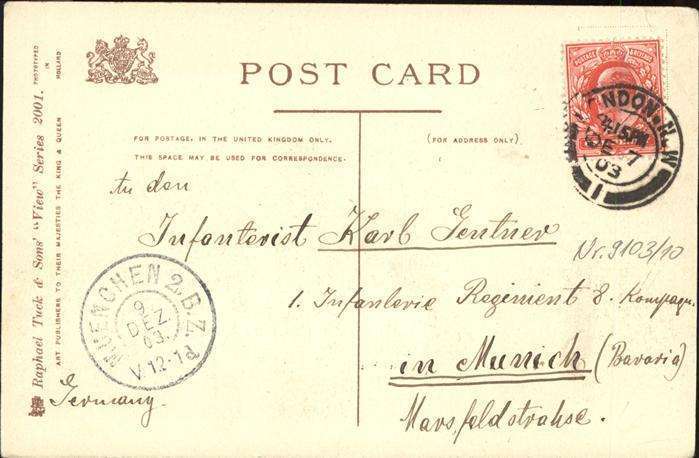 POST CARD
FOR POSTAGE, IN THE UNITED KINGDOM ONLY,
THIS SPACE MAY BE USED FOR CORRESPONDENCE.
(FOR ADDRESS ONLY)
Raphael Tuck & Sons' "View" Series 2001.
ART PUBLISHERS TO THEIR MAJESTIES THE KING & QUEEN
PHOTOTYPED
IN
HOLLAND
LONDON. N.W
4.15PM
DE 7
03
1
An den
Infanterist Karl Gentner
Nr. 9103/10
1. Infanterie Regiment 8. Kompagn.
in Munich (Bavaria)
Marsfeldstrahse.
Germany.
MUENCHEN 2.B.Z.
9.
DEZ.
03.
V.12-1d